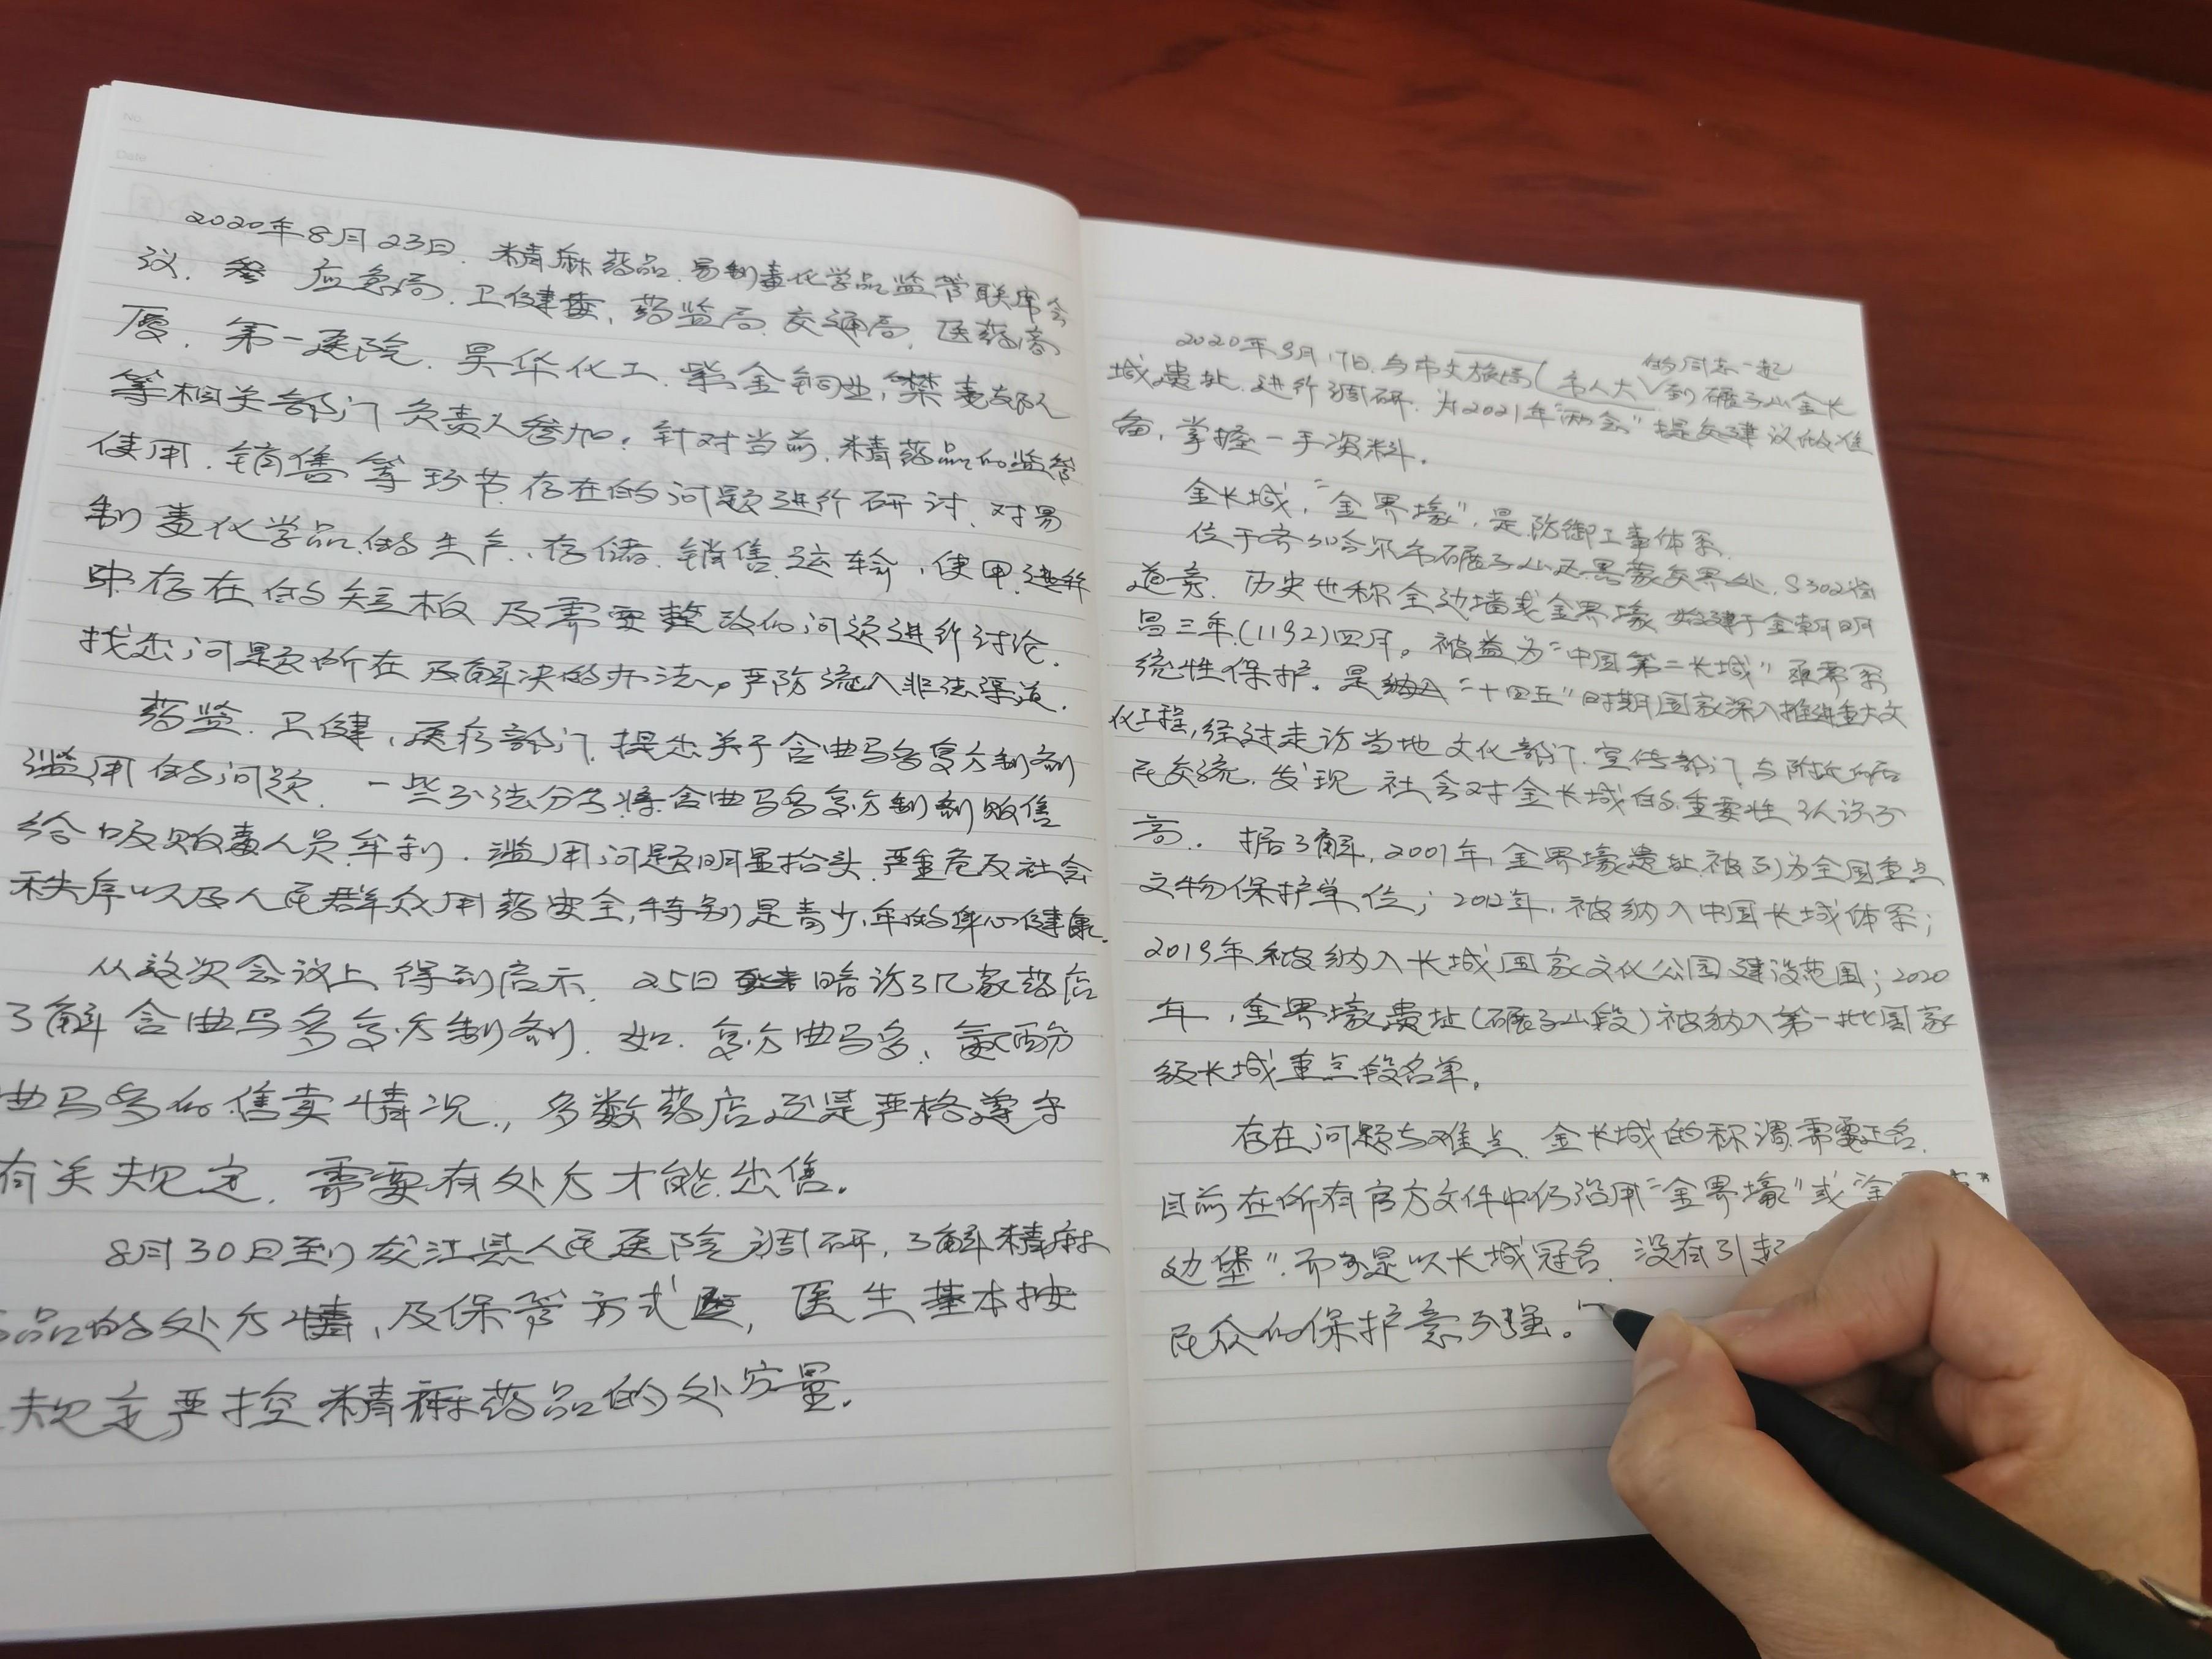 No.
Date
2020年8月23日.精麻药品.易制毒化学品监管联席会
议. 应急局.卫健委,药监局.交通局.医药
第一医院.昊华化工.紫金铜业,禁毒支队
等相关部门负责人参加。针对当前.精药品的监管
使用.销售等环节存在的问题进行研讨.对易
制毒化学品的生产、存储.销售.运输,使用.
中存在的短板及需要整改的问题进行讨论.
找出问题所在及解决的办法。严防流入非法渠道.
药监.卫健,医疗部门.提出关于含曲马多复方制剂
滥用的问题.一些不法分子将含曲马多复方制剂贩售
给吸贩毒人员.牟利.滥用问题明显抬头.严重危及社会
秩序以及人民群众用药安全,特别是青少年的身心健康.
从这次会议上得到启示.25日 暗访了几家药店
了解含曲马多复方制剂.如.复方曲马多、氨酚
曲马多的售卖情况.,多数药店还是严格遵守
有关规定.需要有处方才能出售.
8月30日到龙江县人民医院调研,了解精麻
品的处方情,及保管方式 医生基本按
规定严控精麻药品的处方量.
的同志一起
2020年9月17日.与市文旅局(市人大)到碾子山金长
城遗址.进行调研.为2021年"两会"提交建议做准
备,掌握一手资料.
金长城,"金界壕",是防御工事体系.
位于齐齐哈尔市碾子山区.黑蒙交界处.S302省
道旁.历史也称金边墙或金界壕 始建于金朝明
昌三年.(1192)四月。被益为"中国第二长城"亟需系
统性保护.是纳入"十四五"时期国家深入推进重大文
化工程,经过走访当地文化部门.宣传部门.与附近的居
民交流.发现社会对金长城的重要性认识不
高..据了解,2001年,金界壕遗址被列为全国重点
文物保护单位;2012年,被纳入中国长城体系;
2019年被纳入长城国家文化公园建设范围;2020
年,金界壕遗址(碾子山段)被纳入第一批国家
级长城重点段名单.
存在问题与难点.金长城的称谓需要正名.
目前在所有官方文件中仍沿用"金界壕"或"金
边堡".而不是以长城冠名.没有引起
民众的保护意不强.